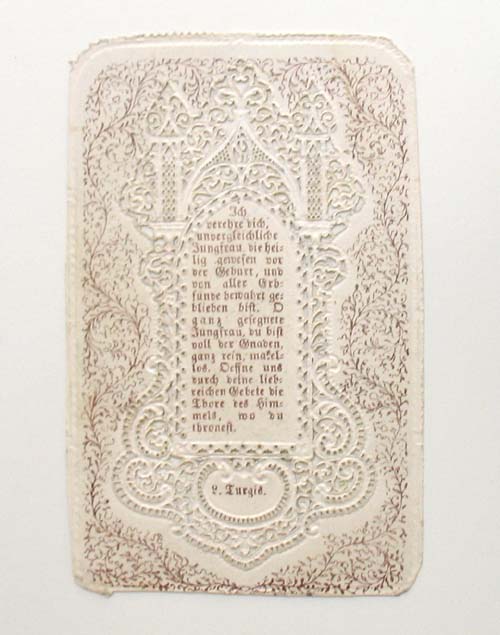 Ich
verehre dich,
unvergleichliche
Jungfrau, die hei-
lig gewesen vor
der Geburt, und
von aller Erb-
sünde bewahrt ge-
blieben bist. O
ganz gesegnete
Jungfrau, du bist
voll der Gnaden,
ganz rein, makel-
los. Oeffne uns
durch deine lieb-
reichen Gebete die
Thore des Him-
mels, wo du
thronest.
L. Turgis.